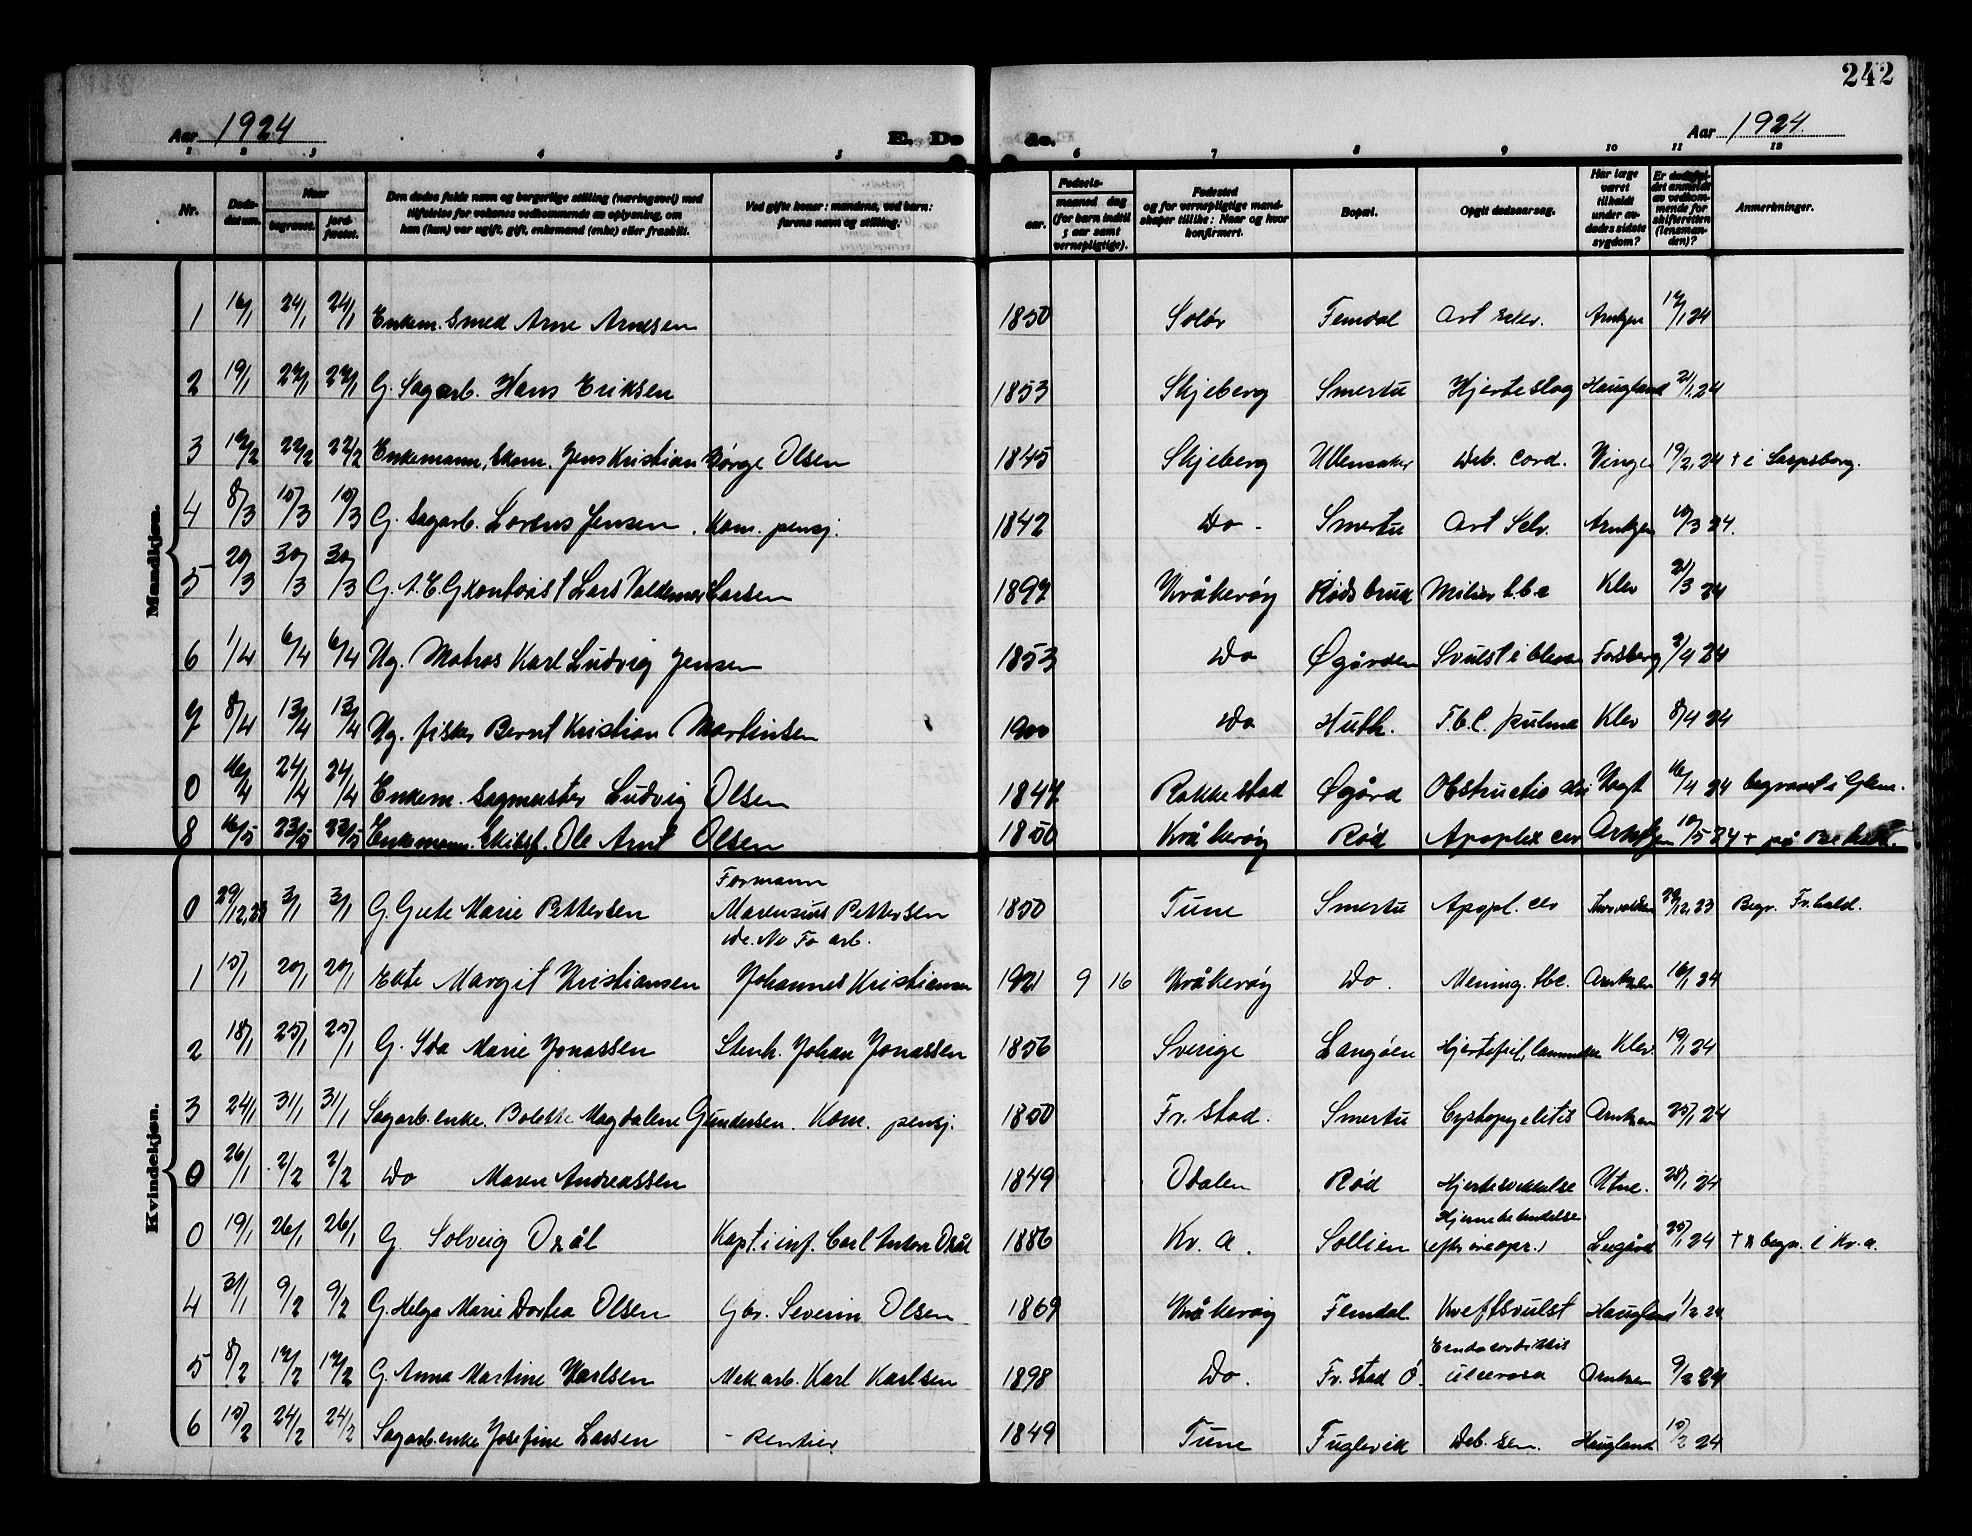 242
Aar 1924 E. Dø
de. Aar 1924.
1 2 3 4 5 6 7 8 9 10 11 12
Nr. Døds-datum. Naar begravet. jord-fæstet. Den dødes fulde navn og borgerlige stilling (næringsvei) med tilføielse for voksnes vedkommende av oplysning, om han (hun) var ugift, gift, enkemand (enke) eller fraskilt. Ved gifte koner: mandens, ved barn: farens navn og stilling. Fødsels- aar. maaned dag (for barn indtil 5 aar samt vernepligtige). Fødested og for vernepligtige mandskaper tillike: Naar og hvor konfirmert. Bopæl. Opgit dødsaarsag. Har læge været tilkaldt under avdødes sidste sygdom? Er dødsfaldet anmeldt av vedkommende for skifteretten (lensmanden)? Anmerkninger.
Mandkjøn.
1 16/1 24/1 24/1 Enkem. Smed Arne Arnesen 1850 Solør Femdal Art scler. Arntzen 17/1 24
2 19/1 27/1 27/1 G. Sagarb. Hans Eriksen 1853 Skjeberg Smertu Hjerteslag Haugland 21/1 24
3 17/2 22/2 22/2 Enkemann, Skom. Jens Kristian Børge Olsen 1845 Skjeberg Ullensaker Deb. cord. Vinge 19/2 24 + i Sarpsborg.
4 8/3 15/3 15/3 G. Sagarb. Lorens Jensen. Kom. pensj. 1842 Do - Smertu Art Sclr. Arntzen 10/3 24.
5 20/3 30/3 30/3 G. A.E.G kontorist Lars Valdemar Larsen 1897 Kråkerøy Rødsbrud Miliær tbc Klev 21/3 24
6 1/4 6/4 6/4 Ug. Matros Karl Ludvig Jensen 1853 Do Øgården Svulst i blære Forsberg 3/4 24
7 8/4 13/4 13/4 Ug. fisker Bernt Kristian Martinsen 1900 Do Huth. T.b.C. pulma Klev 8/4 24
0 16/4 24/4 24/4 Enkem. Sagmester Ludvig Olsen 1847 Rakkestad Øgård Obstructio Vogt 16/4 24 begravet i Glem.
8 16/5 23/5 23/5 Enkemann. Skibsf. Ole Arnt Olsen 1850 Kråkerøy Rød Apoplex cer Arntzen 17/5 24 + på
Kvindekjøn.
0 29/12.23 3/1 3/1 G Grete Marie Pettersen Formann Marensius Pettersen 1850 Tune Smertu Apopl. cer Thorvaldsen 29/12.23 Begr. Fr.hald.
De. No Fa arb.
1 15/1 20/1 20/1 Ekte Margit Kristiansen Johannes Kristiansen 1921 9 16 Kråkerøy Do. Mening. tbc. Arntzen 16/1 24
2 18/1 25/1 25/1 G. Ida Marie Jonassen Stenh. Johan Jonassen 1856 Sverige Langøen Hjertefeil, lammelse Klev 19/1 24
3 24/1 31/1 31/1 Sagarb.enke. Bolette Magdalene Gundersen. Kom. pensj. 1850 Fr.stad. Smertu Cystopyelitis Arntzen 25/1 24
0 26/1 2/2 2/2 Do Maren Andreassen 1849 Odalen Rød Hjertesvekkelse Utne. 28/1 24
0 19/1 26/1 26/1 G. Solveig Ozål Kapt i inf. Carl Anton Ozål 1886 Kr. a. Sollien Hjernebetendelse (efter øreopr.) Lugård 25/1 24 + & begr. i Kr.a.
4 31/1 9/2 9/2 G. Helga Marie Dortea Olsen Gbr. Severin Olsen 1869 Kråkerøy Femdal Kreftsvulst Haugland 1/2 24
5 8/2 17/2 17/2 G. Anna Martine Karlsen Mek arb. Karl Karlsen 1898 Do. Fr. stad Ø. Endocarditis ulcerosa Arntzen 9/2 24
6 15/2 24/2 24/2 Sagarb.enke Josefine Larsen - Rentier 1849 Tune Fuglevik Deb. sen. Haugland 15/2 24